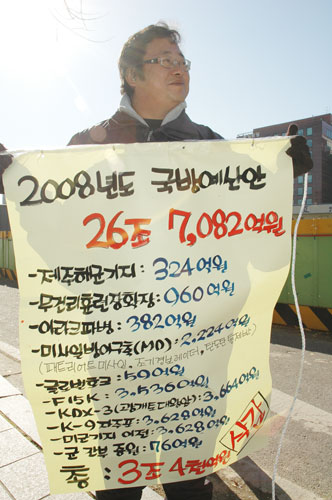 2008년도 국방예산안
26조 7,082억원
-제주해군기지: 324억원
-무건리훈련장확장: 960억원
-이라크파병: 382억원
-미사일방어구축(MD): 2,224억원
(패트리어트미사일, 조기경보레이더, 탄도탄
-글로벌호크: 59억원
-F15K: 3,536억원
-KDX-3(광개토대왕함) 3,664억원
-K-9자주포: 3,628억원
-미군기지 이전: 3,628억원
-군 간부 증원: 76억원
삭감
총: 3조 4천억원